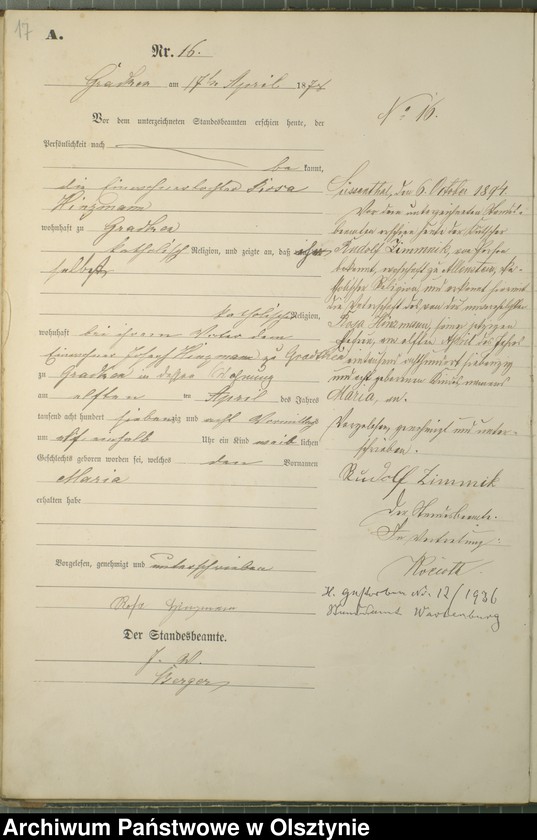 17
A.
Nr. 16.
Gradken am 17ten April 1878
Vor dem unterzeichneten Standesbeamten erschien heute, der
Persönlichkeit nach
be kannt,
die Einwohnertochter Rosa
Hinzmann
wohnhaft zu Gradken
katholisch Religion, und zeigte an, daß
selbst
katholisch Religion,
wohnhaft bei ihrem Vater dem
Einwohner Joseph Hinzmann zu Gradken
zu Gradken in dessen Wohnung
am elften ten April des Jahres
tausend acht hundert siebenzig und acht Vormittags
um elf einhalb Uhr ein Kind weib lichen
Geschlechts geboren worden sei, welches den Vornamen
Maria
erhalten habe
Vorgelesen, genehmigt und unterschrieben
Rosa Hinzmann
Der Standesbeamte.
Berger
No 16.
den 6. October 1894.
Vor dem unterzeichneten Standes-
beamten erschien heute der Kutscher
Rudolf Zimmnik, von Person
bekannt, wohnhaft zu Allenstein, ka-
tholischer Religion und erkennt hiermit
die Vaterschaft des von der unverehelichten
Rosa Hinzmann, seiner jetzigen
Ehefrau, am elften April des Jahres
eintausend achthundert siebenzig
und acht geborenen Kindes namens
Maria, an.
Vorgelesen, genehmigt und unter-
schrieben.
Rudolf Zimmik
Der Standesbeamte.
In Vertretung:
gestorben No. 12/1936
Standesamt Wartenburg
Archiwum Państwowe w Olsztynie